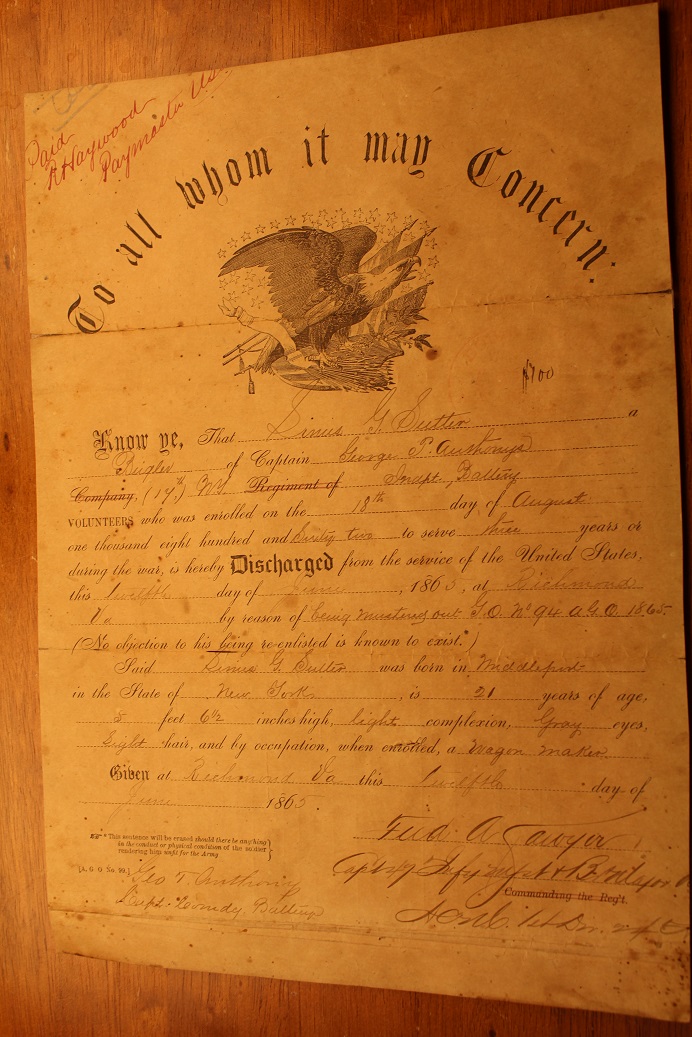 Paid
R H Haywood
Paymaster U.S.
To all whom it may Concern:
$100
Know ye, That Linus G. Sutter a
Bugler of Captain George T. Anthony's
Company, (17th) N.Y. Regiment of Indpt. Battery
VOLUNTEERS who was enrolled on the 18th day of August
one thousand eight hundred and Sixty two to serve three years or
during the war, is hereby Discharged from the service of the United States,
this Twelfth day of June, 1865, at Richmond
Va by reason of being mustered out G.O. No 94 A.G.O. 1865
(No objection to his being re-enlisted is known to exist.*)
Said Linus G. Sutter was born in Middleport
in the State of New York, is 21 years of age,
5 feet 6½ inches high, light complexion, Gray eyes,
Light hair, and by occupation, when enrolled, a Wagon Maker.
Given at Richmond Va this Twelfth day of
June 1865.
*This sentence will be erased should there be anything
in the conduct or physical condition of the soldier
rendering him unfit for the Army
[A. G. O. No. 99.]
Geo T. Anthony
Capt. Comdg. Battery
Fred A Sawyer
Capt 47 N.Y.
Commanding the Reg't.
A.C.M. 1st Div. 24